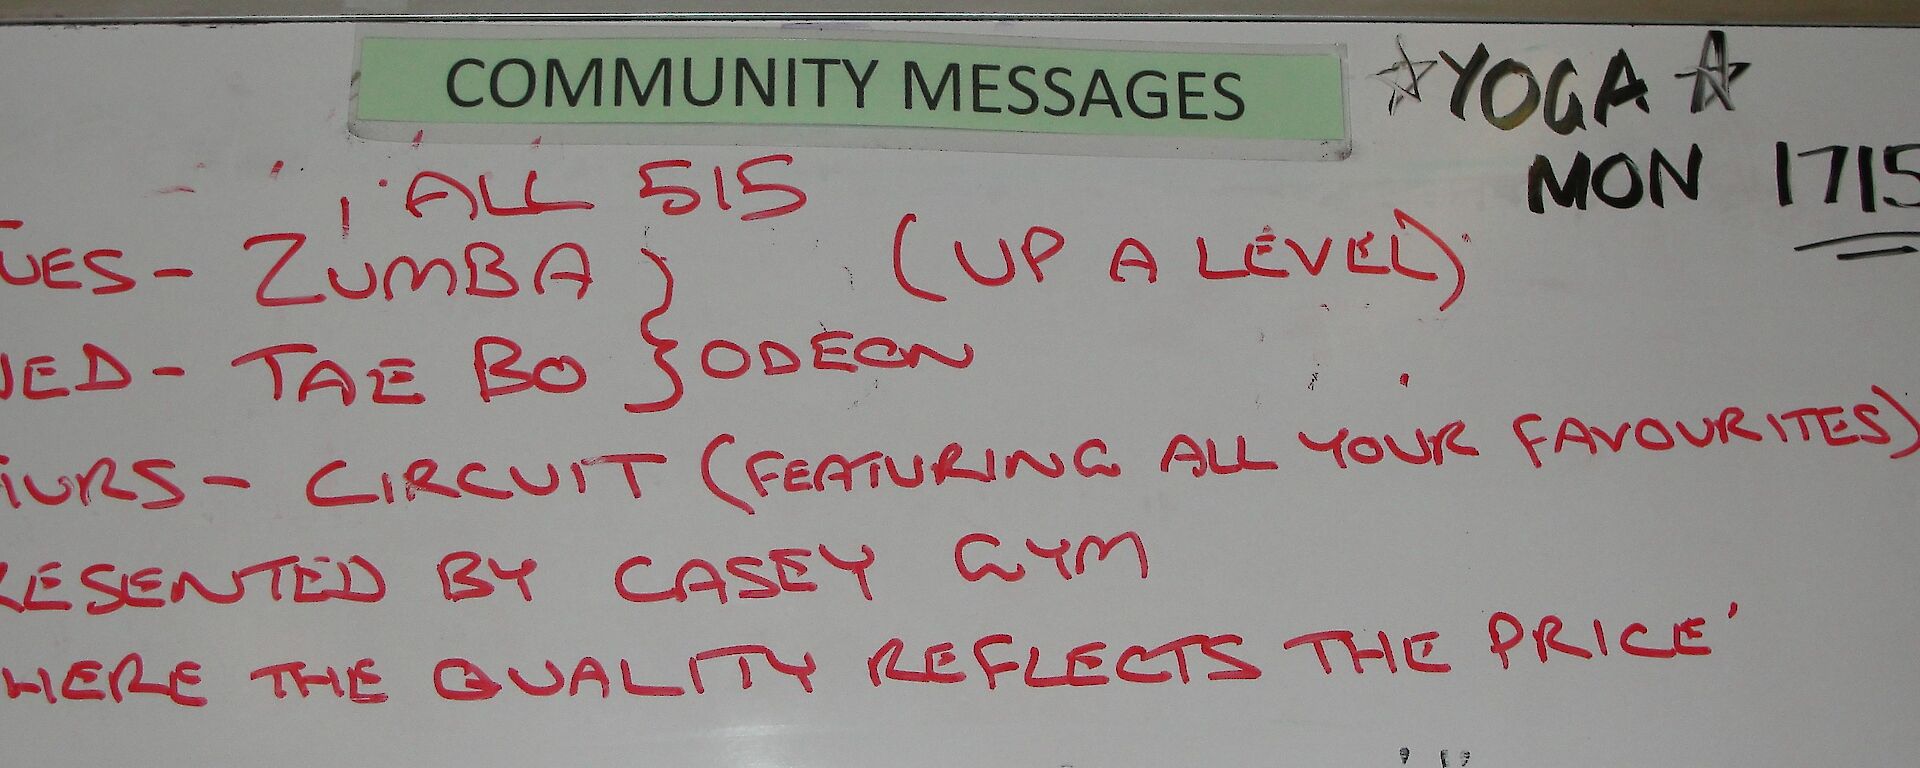 COMMUNITY MESSAGES
☆YOGA☆
MON 1715
ALL 515
UES - ZUMBA } (UP A LEVEL)
ED - TAE BO } ODEON
URS - CIRCUIT (FEATURING ALL YOUR FAVOURITES)
RESENTED BY CASEY GYM
HERE THE QUALITY REFLECTS THE PRICE'